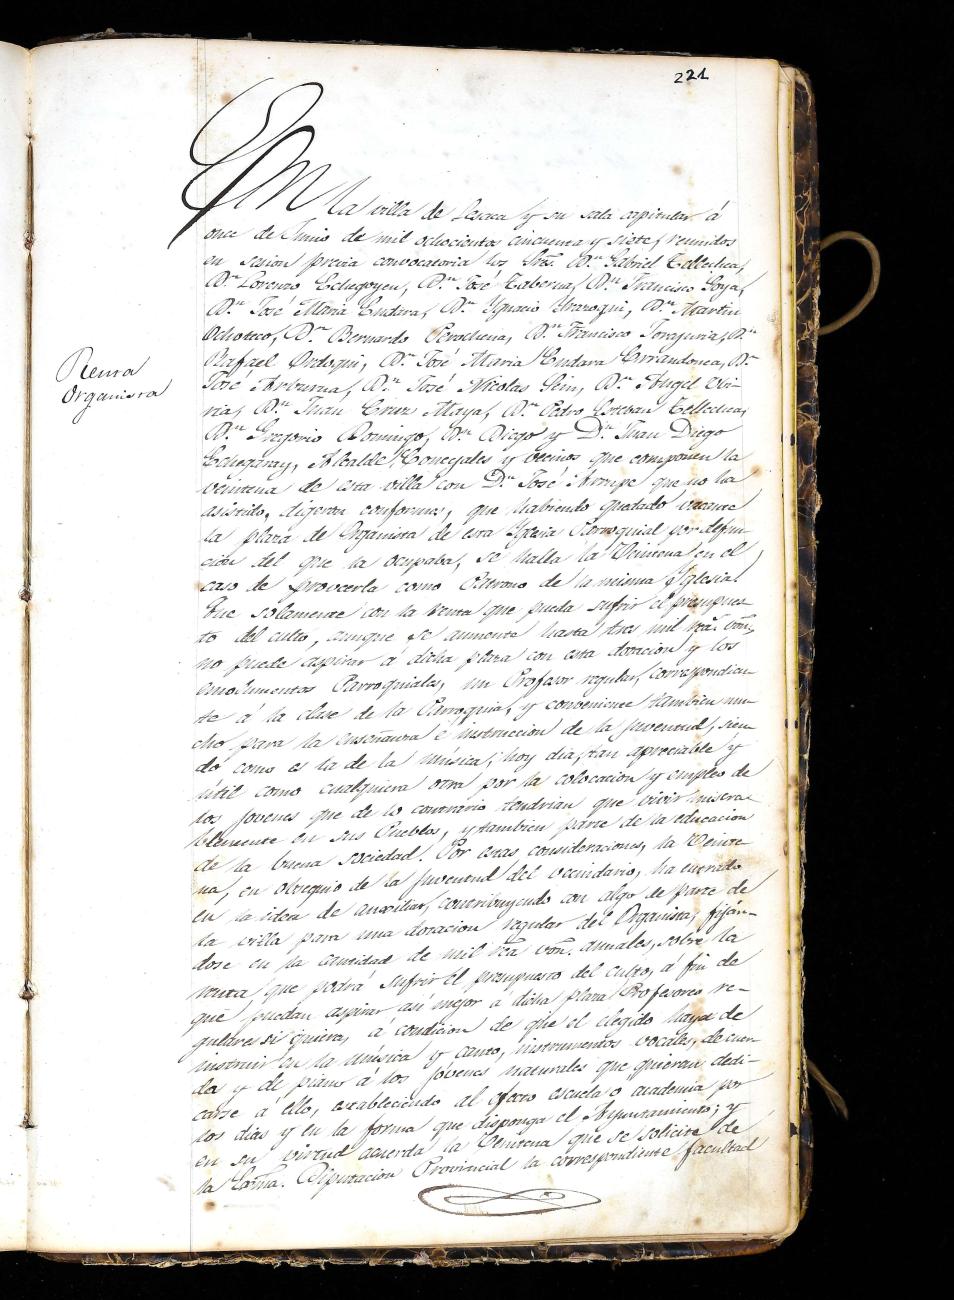 221
En la villa de Lesaca y su sala capitular á
once de Junio de mil ochocientos cincuenta y siete, reunidos
en sesion previa convocatoria los Sres. Dn. Gabriel Tellechea,
Dn. Lorenzo Echegoyen, Dn. José Taberna, Dn. Francisco Goya,
Dn. José Maria Endara, Dn. Ygnacio Yrazoqui, Dn. Martin
Ochoteco, Dn. Bernardo Perochena, Dn. Francisco Norajuria, Dn.
Rafael Ordoqui, Dn. José Maria Endara Errandonea, Dn.
José Arburua, Dn. José Nicolas Lein, Dn. Angel
Dn. Juan Cruz Maya, Dn. Pedro Esteban Tellechea,
Dn. Gregorio Domingo, Dn. Diego y Dn. Juan Diego
Echegaray, Alcalde, Concejales y vecinos que componen la
veintena de esta villa con Dn. José que no ha
asistido, digeron conformes, que habiendo quedado vacante
la plaza de Organista de esta Yglesia Parroquial por defun-
cion del que la ocupaba, se halla la Veintena en el
caso de proveerla como Patrono de la misma Yglesia:
Que solamente con la renta que pueda sufrir el presupues-
to del culto, aunque se aumente hasta tres mil rs. von.,
no puede aspirar á dicha plaza con esta dotacion y los
emolumentos Parroquiales, un Profesor regular, correspondien-
te á la clase de la Parroquia, y conveniente tambien mu-
cho para la enseñanza é instruccion de la juventud, sien-
do como es la de la música, hoy dia, tan apreciable y
útil como cualquiera otra por la colocacion y empleo de
los jovenes que de lo contrario tendrian que vivir misera-
blemente en sus Pueblos, y tambien parte de la educacion
de la buena sociedad. Por estas consideraciones, la Veinte-
na, en obsequio de la juventud del vecindario, ha entrado
en la idea de auxiliar, contribuyendo con algo de parte de
la villa para una dotacion regular del Organista, fiján-
dose en la cantidad de mil rs. von. annales, sobre la
renta que podrá sufrir el presupuesto del culto, á fin de
que puedan aspirar asi mejor á dicha plaza Profesores re-
gulares si quiera, á condicion de que el elegido haya de
instruir en la música y canto, instrumentos vocales, de cuer-
da y de piano á los jovenes naturales que quieran dedi-
carse á ello, estableciendo al efecto escuela ó academia por
los dias y en la forma que disponga el Ayuntamiento; y
en su virtud acuerda la Veintena que se solicite de
la Exma. Diputacion Provincial la correspondiente facultad
Renta
Organista